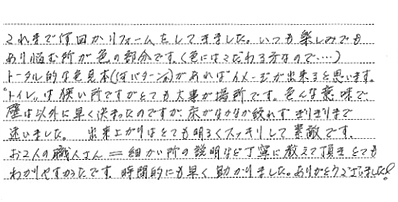 これまで何回かリフォームをしてきました。いつも楽しみでも
あり悩む所が色の部分です。(色にはこだわる方なので……)
トータル的な色見本(パターン)があればイメージが出来ると思います。
"トイレ"は狭い所ですがとても大事な場所です。色んな意味で
壁は以外に早く決まったのですが、床がなかなか絞れずぎりぎりまで
迷いました。 出来上がりはとても明るくスッキリして素敵です。
お2人の職人さん = 細かい所の説明など丁寧に教えて頂きとても
わかりやすかったです 時間的にも早く助かりました。ありがとうございました!